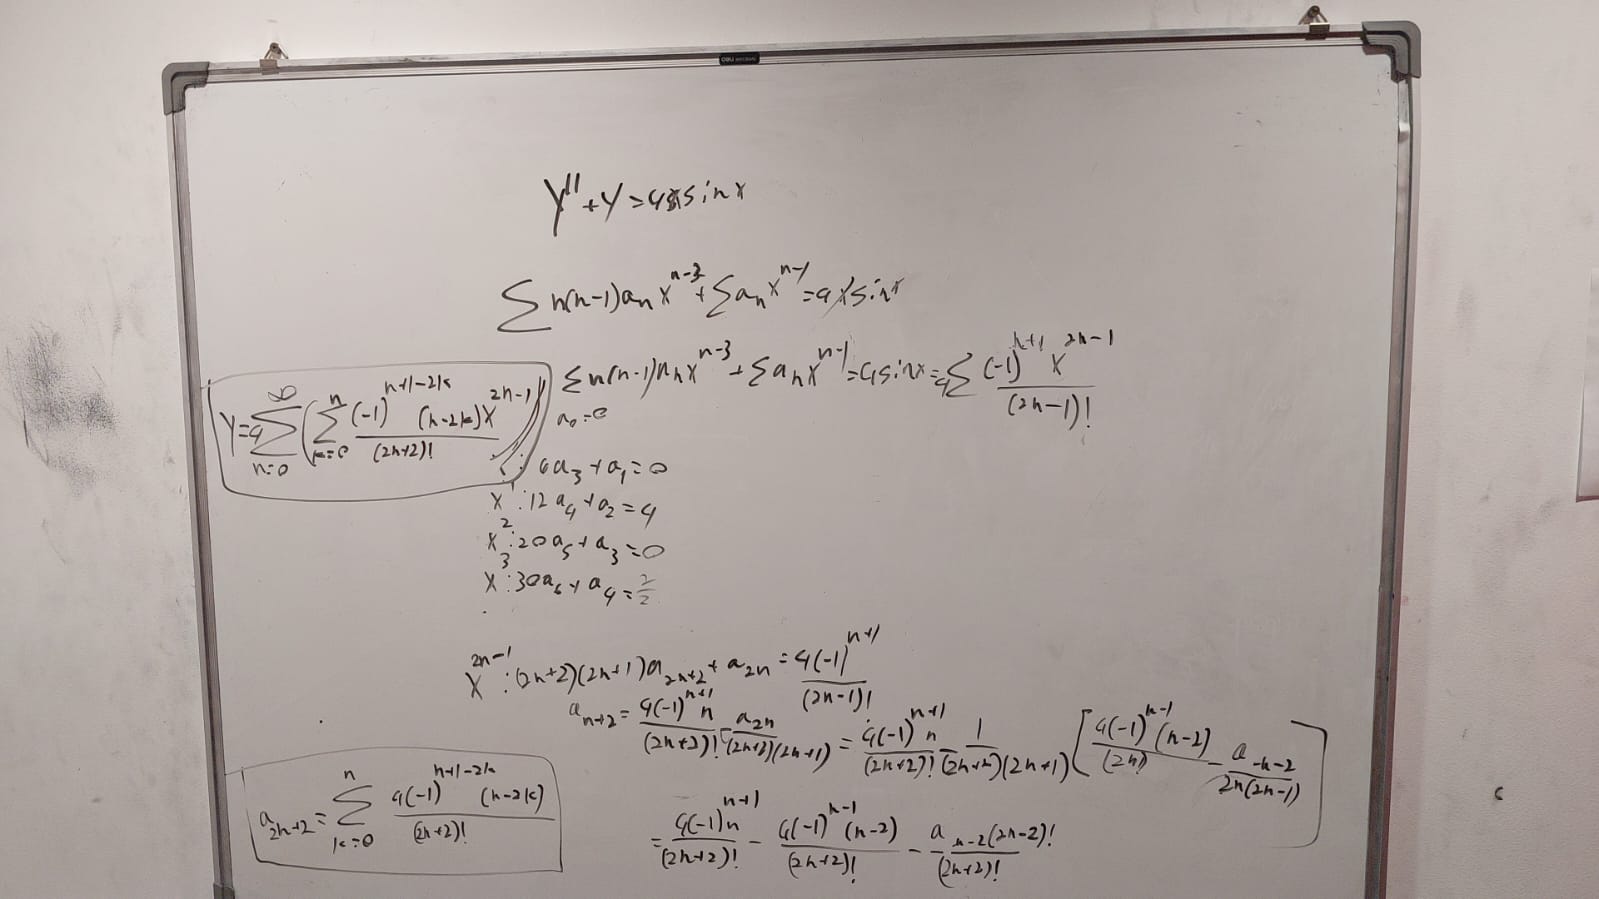 deli
y''+y=4xsinx
∑n(n-1)aₙx^(n-3)+∑aₙx^(n-1)=4xsinx
∑n(n-1)aₙx^(n-3)+∑aₙx^(n-1)=4sinx=4∑((-1)^(n+1) x^(2n-1))/(2n-1)!
a₀=0
y=4∑_(n=0)^∞(∑_(k=0)^n ((-1)^(n+1-2k) (n-2k)x^(2n-1))/(2n+2)!
: 6a₃+a₁=0
x¹:12a₄+a₂=4
x²:20a₅+a₃=0
x³:30a₆+a₄=2/2
x^(2n-1):(2n+2)(2n+1)a_(2n+2)+a_(2n)=4(-1)^(n+1)/(2n-1)!
a_(n+2)=4(-1)^(n+1)n/(2n+2)!-a_(2n)/((2n+2)(2n+1))=4(-1)^(n+1)n/(2n+2)!-1/((2n+2)(2n+1))[4(-1)^(n-1)(n-2)/(2n)!-a_(n-2)/(2n(2n-1))]
a_(2n+2)=∑_(k=0)^n 4(-1)^(n+1-2k) (n-2k)/(2n+2)!
=4(-1)^(n+1)n/(2n+2)!-4(-1)^(n-1)(n-2)/(2n+2)!-a_(n-2)(2n-2)!/(2n+2)!